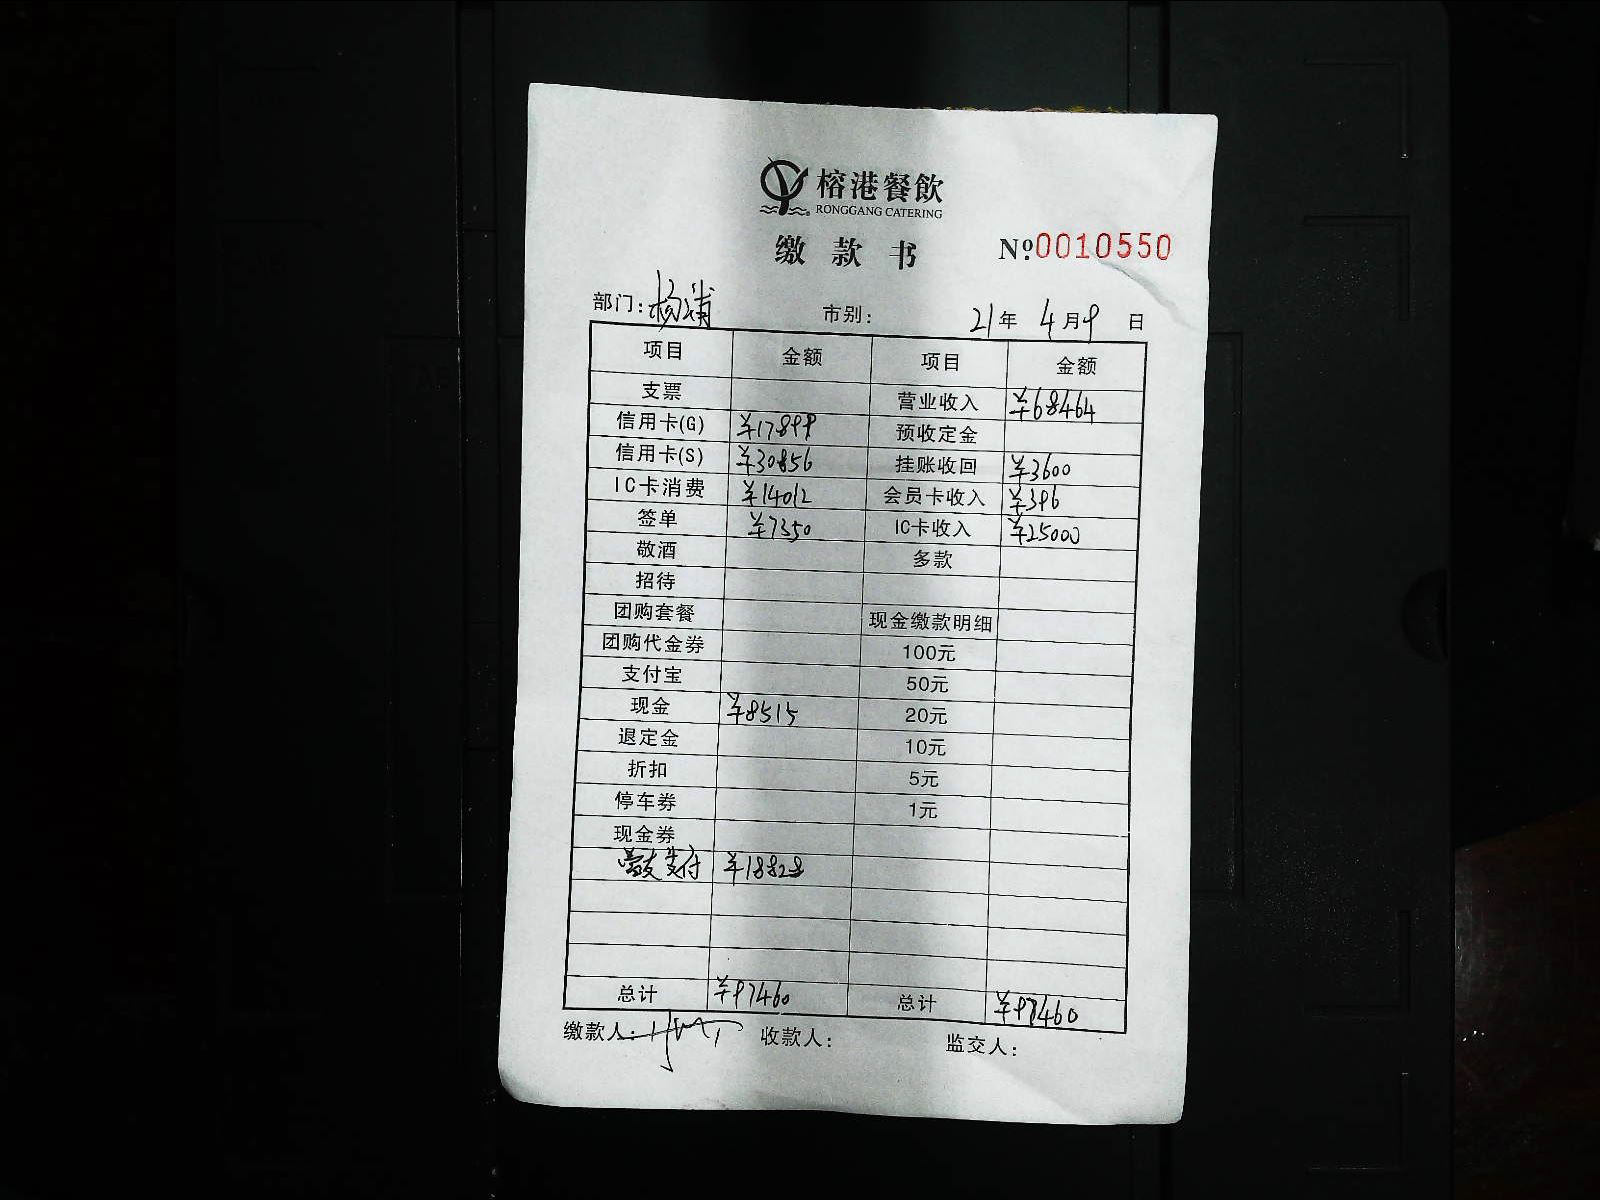 榕港餐飲
RONGGANG CATERING
缴款书
№0010550
部门：杨浦 市别： 21年 4月9日
项目 金额 项目 金额
支票 营业收入 ¥68464
信用卡(G) ¥17899 预收定金
信用卡(S) ¥30856 挂账收回 ¥3600
IC卡消费 ¥14012 会员卡收入 ¥396
签单 ¥7350 IC卡收入 ¥25000
敬酒 多款
招待
团购套餐 现金缴款明细
团购代金券 100元
支付宝 50元
现金 ¥8515 20元
退定金 10元
折扣 5元
停车券 1元
现金券
支付 ¥18828
总计 ¥97460 总计 ¥97460
缴款人： 收款人： 监交人：